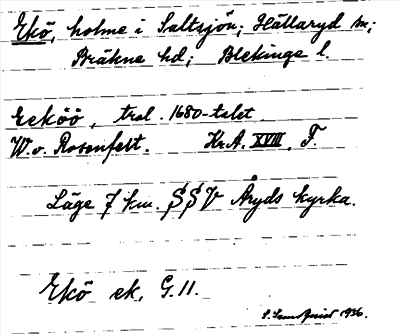 Ekö, holme i Saltsjön; Hällaryd sn;
Bräkne hd; Blekinge l.
Eeköö, trol. 1680-talet
W. v. Rosenfelt. Kr.A. XVIII. F.
Läge 7 km. SSV Åryds kyrka.
Ekö ek. G. 11.
1936.